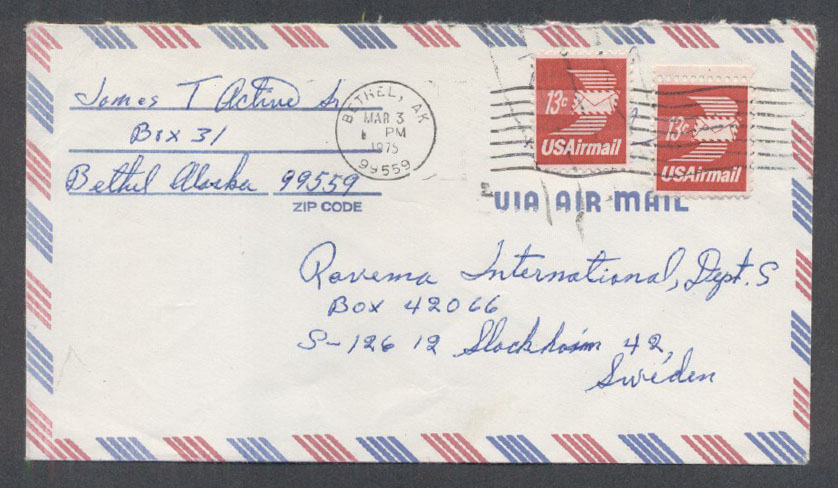 James T Active Sr
Box 31
Bethel Alaska 99559
ZIP CODE
BETHEL, AK
MAR 3
PM
1975
99559
13c
USAirmail
13c
USAirmail
VIA AIR MAIL
Ravema International, Dept. S
Box 42066
S-126 12 Stockholm 42,
Sweden